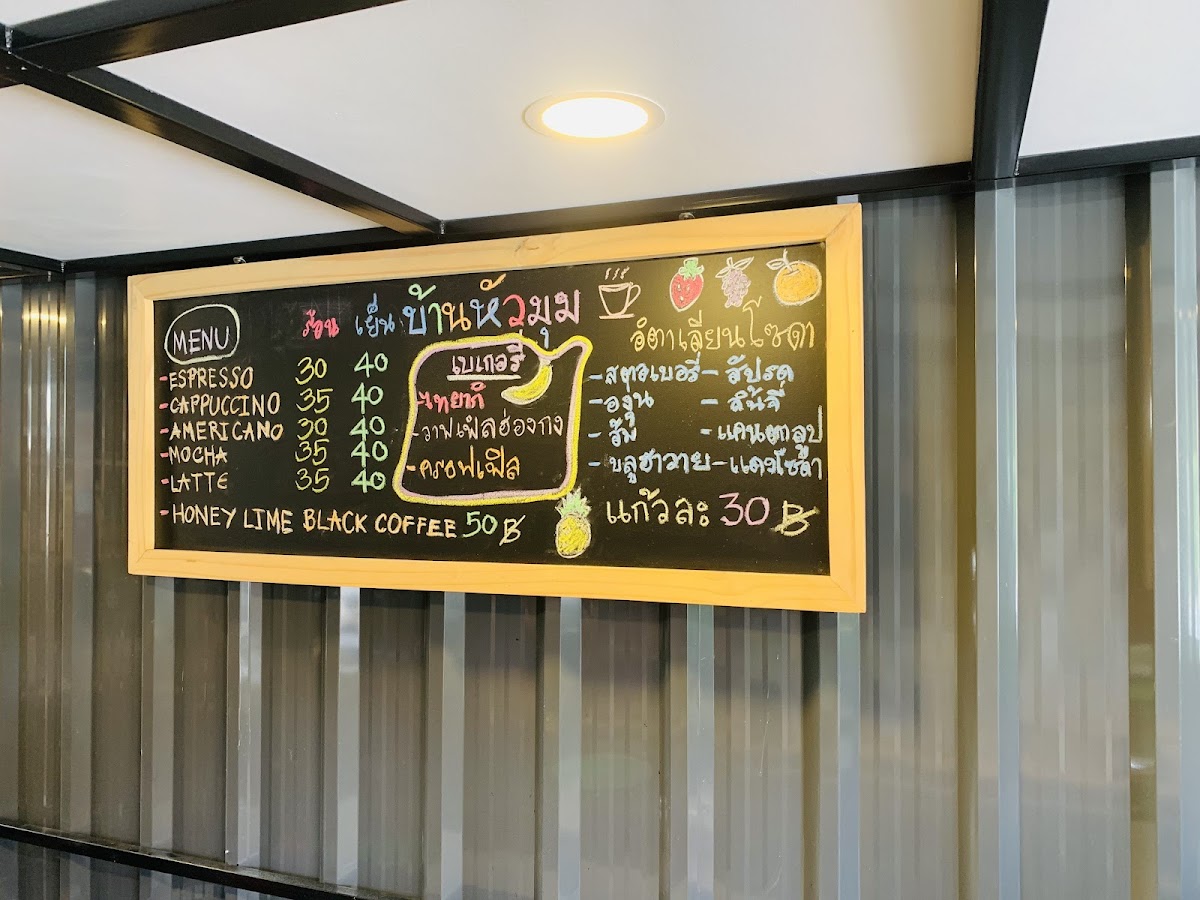 MENU ร้อน เย็น บ้านหัวมุม
-ESPRESSO 30 40
-CAPPUCCINO 35 40
-AMERICANO 30 40
-MOCHA 35 40
-LATTE 35 40
-HONEY LIME BLACK COFFEE 50 ฿
เบเกอรี่
-วาฟเฟิลฮ่องกง
-ครอฟเฟิล
อิตาเลียนโซดา
-สตอเบอรี่ -สัปรด
-องุ่น -ลิ้นจี่
-ส้ม -แคนตาลูป
-บลูฮาวาย -แดงโซดา
แก้วละ 30 ฿